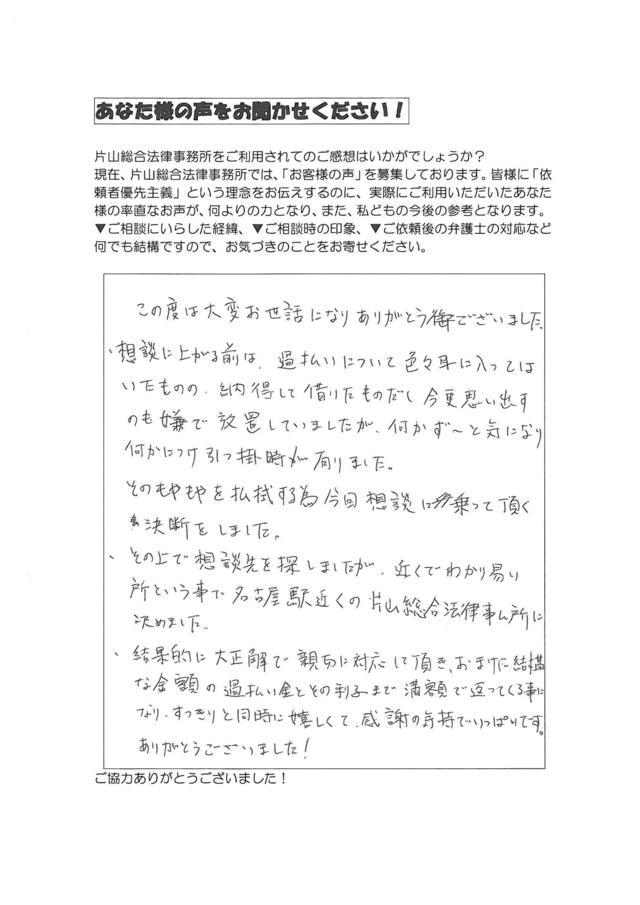 あなた様の声をお聞かせください！
片山総合法律事務所をご利用されてのご感想はいかがでしょうか？
現在、片山総合法律事務所では、「お客様の声」を募集しております。皆様に「依
頼者優先主義」という理念をお伝えするのに、実際にご利用いただいたあなた
様の率直なお声が、何よりの力となり、また、私どもの今後の参考となります。
▼ご相談にいらした経緯、▼ご相談時の印象、▼ご依頼後の弁護士の対応など
何でも結構ですので、お気づきのことをお寄せください。
この度は大変お世話になりありがとうございました
、想談に上がる前は、過払いについて色々耳に入っては
いたものの、納得して借りたものだし今更思い出す
のも嫌で放置していましたが、何かず〜と気になり
何かにつけ引っ掛時が有りました。
そのもやもやを払拭する為今回想談に乗って頂く
決断をしました。
、その上で想談先を探しましたが、近くでわかり易い
所という事で名古屋駅近くの片山総合法律事ム所に
決めました。
、結果的に大正解で親切に対応して頂き、おまけに結構
な金額の過払い金とその利子まで満額で返ってくる事に
なり、すっきりと同時に嬉しくて、感謝の気持でいっぱいです。
ありがとうございました！
ご協力ありがとうございました！